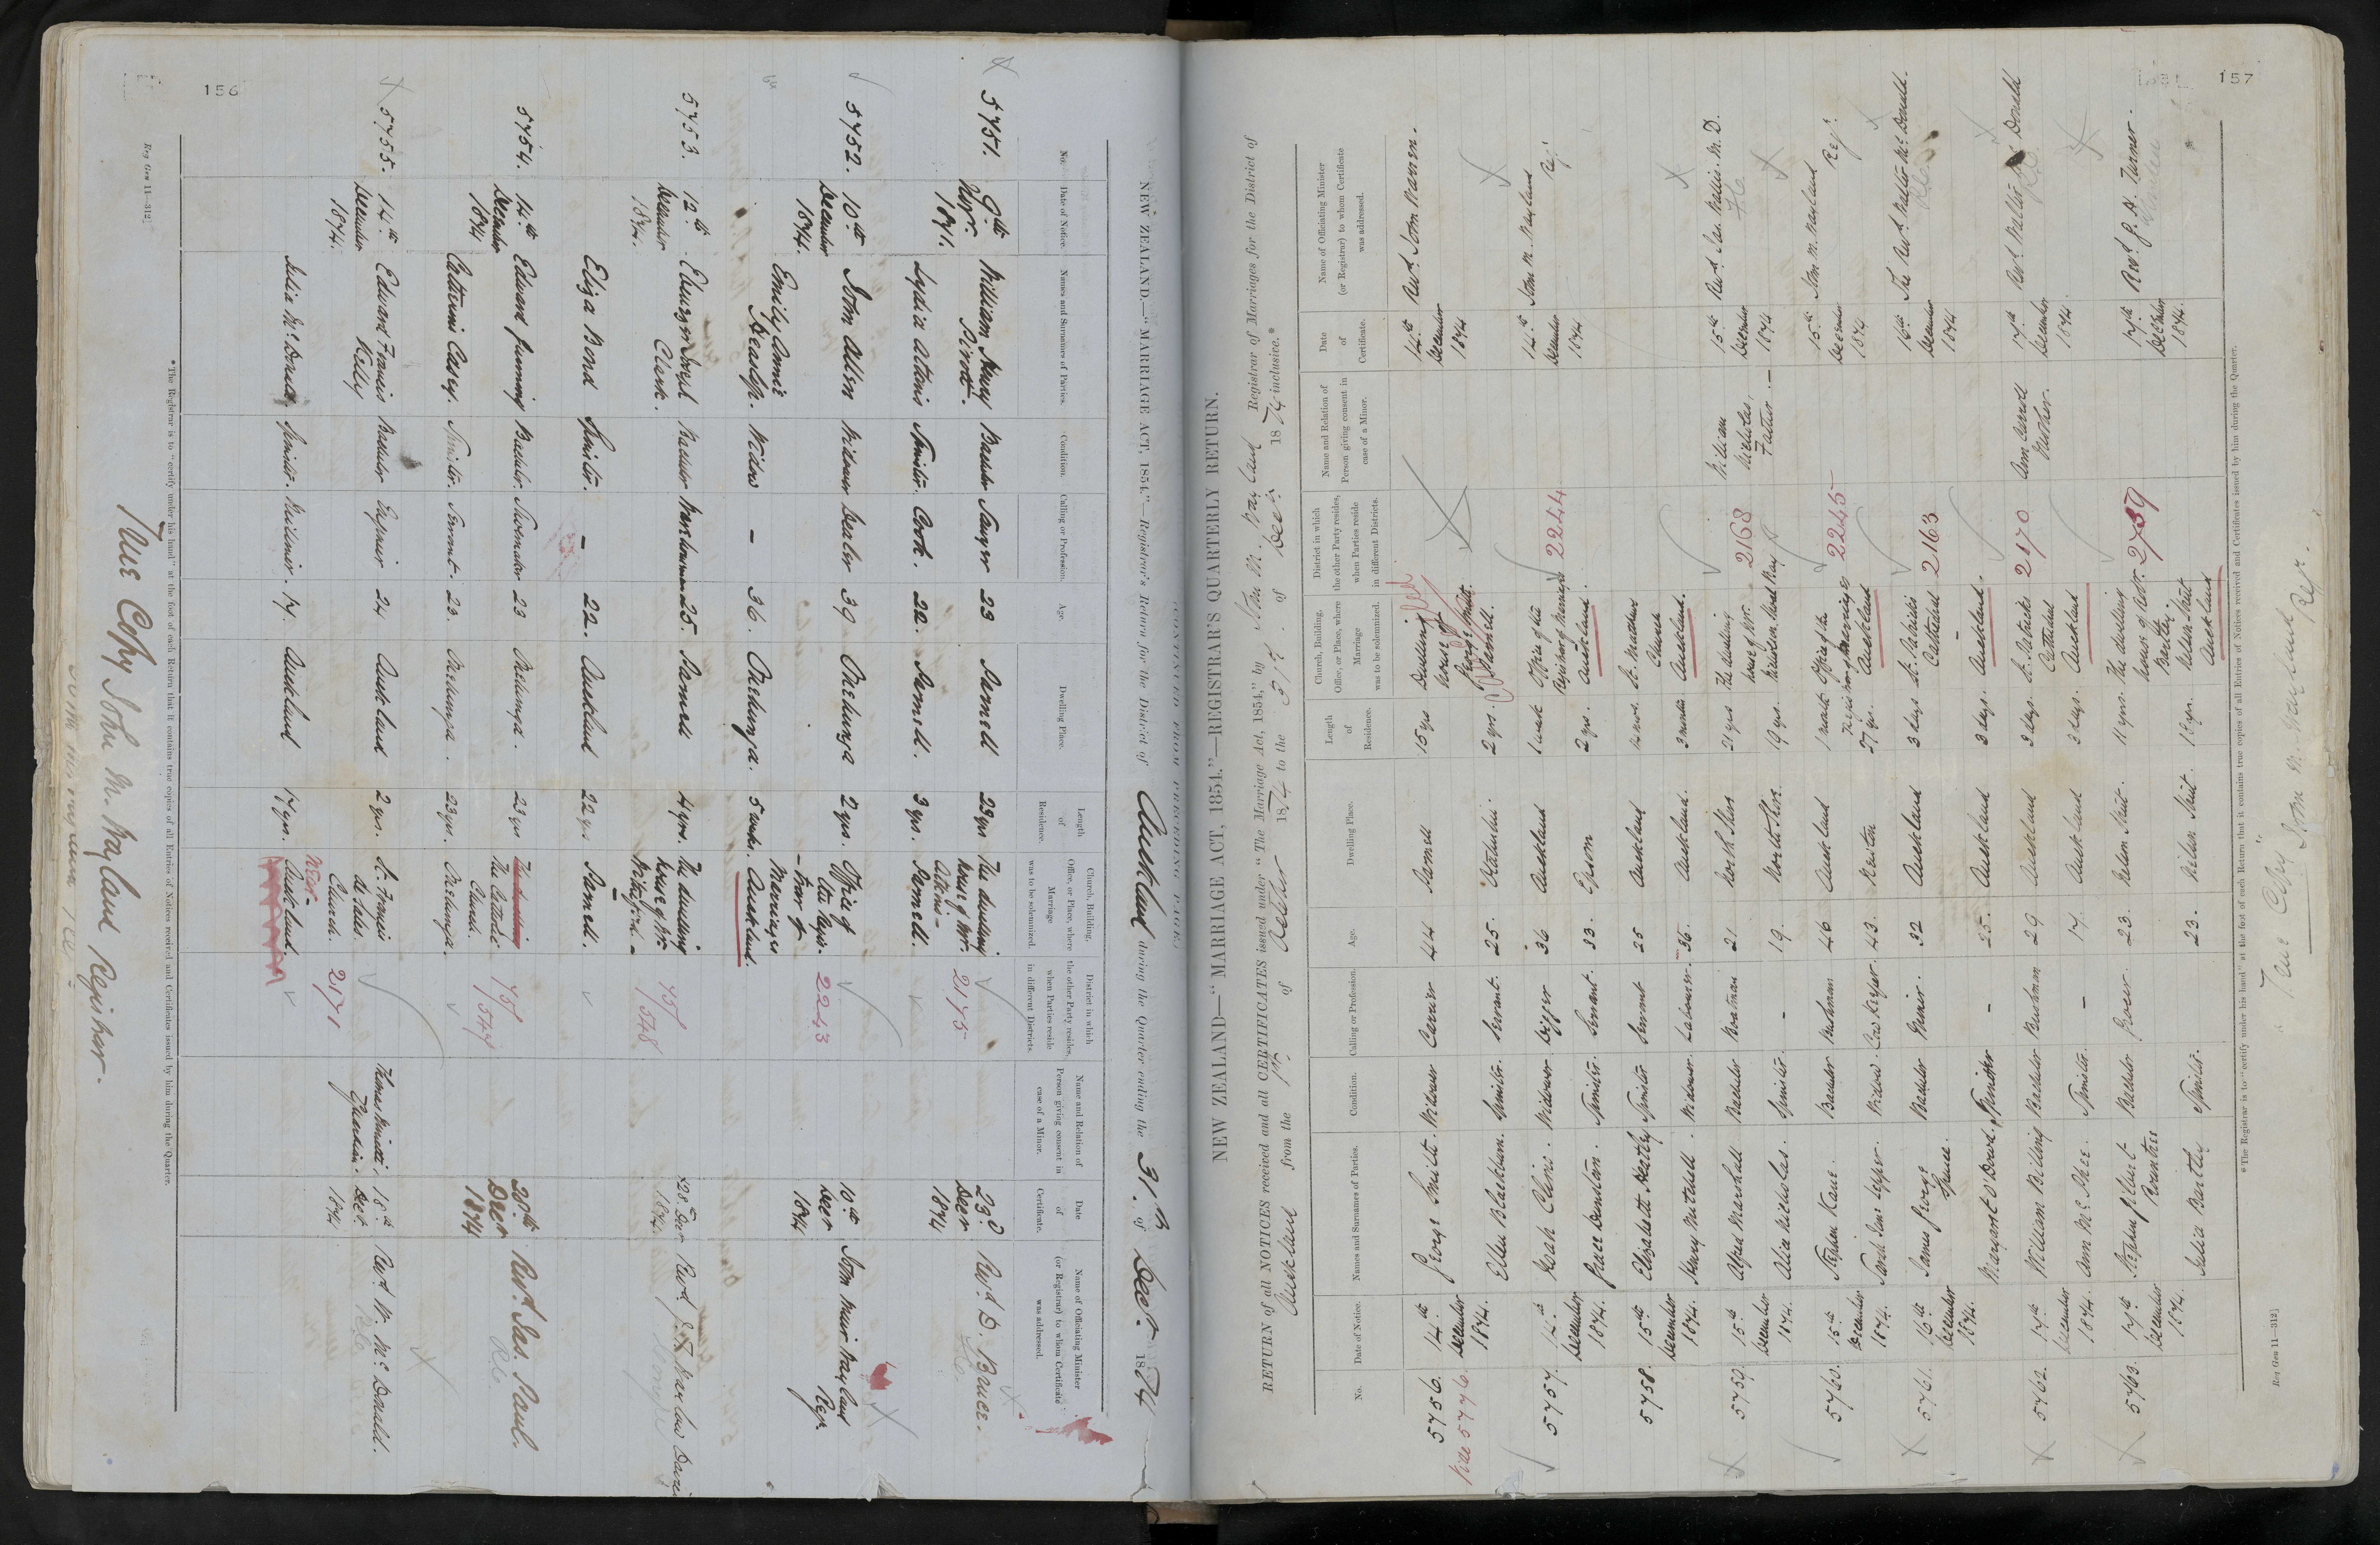 156
NEW ZEALAND.—"MARRIAGE ACT, 1854."—Registrar's Return for the District of Auckland during the Quarter ending the 31st of Decr. 1874
No. Date of Notice. Names and Surnames of Parties. Condition. Calling or Profession. Age. Dwelling Place. Length of Residence. Church, Building, Office, or Place, where Marriage was to be solemnized. District in which the other Party resides, when Parties reside in different Districts. Name and Relation of Person giving consent in case of a Minor. Date of Certificate. Name of Officiating Minister (or Registrar) to whom Certificate was addressed.
5751. 9th Novr. 1874. William Henry Bachelor Sawyer 23 Parnell 23 yrs The dwelling house of Mr. 2175 23d Decr 1874 Revd. D. Bruce.
Lydia Spinster. Cook. 22. Parnell. 3 yrs. Parnell.
5752. 10th December 1874. John Allen Widower Dealer 39 Onehunga 2 yrs. Office of the Registrar of Marriages 2243 10th Decr 1874 John Muir Wayland Regr.
Emily Annie Widow – 36. Onehunga. 5 weeks. Auckland.
5753. 12th December 1874. Ebenezer Clark. Bachelor Warehouseman 25. Parnell 4 yrs. The dwelling house of Mr. 75/548 28 Decr 1874. Revd.
Eliza Bond Spinster. – 22. Auckland 22 yrs. Parnell.
5754. 14th December 1874 Edward Bachelor 23 Onehunga. 23 yrs The Catholic Church. 75/544 30th Decr 1874 Revd. Jas. Paul.
Catherine Casey. Spinster. Servant. 23. Onehunga. 23 yrs. Onehunga.
5755. 14th December 1874. Edward Francis Kelly Bachelor Engineer 24 Auckland 2 yrs. St. Francis de Sales Church. 2171 Guardian. 18th Decr. 1874 Revd. W. McDonald.
Julia McDonald, Spinster. Milliner. 17. Auckland 17 yrs. Auckland.
*The Registrar is to "certify under his hand" at the foot of each Return that it contains true copies of all Entries of Notices received and Certificates issued by him during the Quarter.
Reg Gen 11—312]
True Copy John M. Wayland Registrar.
157
NEW ZEALAND—"MARRIAGE ACT, 1854."—REGISTRAR'S QUARTERLY RETURN.
RETURN of all NOTICES received and all CERTIFICATES issued under "The Marriage Act, 1854," by John M. Wayland Registrar of Marriages for the District of
Auckland from the 1st of October 1874 to the 31st of Decr. 1874 inclusive.*
No. Date of Notice. Names and Surnames of Parties. Condition. Calling or Profession. Age. Dwelling Place. Length of Residence. Church, Building, Office, or Place, where Marriage was to be solemnized. District in which the other Party resides, when Parties reside in different Districts. Name and Relation of Person giving consent in case of a Minor. Date of Certificate. Name of Officiating Minister (or Registrar) to whom Certificate was addressed.
5756. 14th December 1874. George Smith. Widower Carrier 44 Parnell 15 yrs Dwelling house George Smith. 14th December 1874 Revd. John Warren.
Vide 5776 Ellen Blackburn. Spinster. Servant. 25. Otahuhu. 2 yrs. Parnell.
5757. 14th December 1874. Noah Clino. Widower Digger 36 Auckland 1 week Office of the Registrar of Marriages 2244 14th December 1874 John M. Wayland Regr.
Grace Dunstan. Spinster. Servant. 33. Epsom 2 yrs. Auckland.
5758. 15th December 1874. Elizabeth Spinster Servant 25 Auckland St. Matthews Church
Henry Mitchell. Widower. Labourer. 36. Auckland. 3 months Auckland.
5759. 15th December 1874. Alfred Marshall Bachelor Boatman 21. North Shore 21 yrs The dwelling house of Mr. 2168 William Nicholas, Father. 15th December 1874 Revd. Jas. Wallis. M.D.
Nicholas. Spinster. – 19. North Shore. 19 yrs.
5760. 15th December 1874. Stephen Kane. Bachelor Bushman 46 Auckland 1 week Office of the Registrar of Marriages 2245 15th December 1874 John M. Wayland Regr.
Sarah Jane Lepper. Widow. Cow Keeper. 43. Newton 27 yrs. Auckland
5761. 16th December 1874. James George Bachelor Miner. 32 Auckland 3 days St. Patricks Cathedral 2163 16th December 1874 The Revd. Walter McDonald.
Margaret O'Dowd. Spinster – 25. Auckland 3 days. Auckland.
5762. 17th December 1874. William Billing Bachelor Bushman 29 Auckland 3 days. St. Patricks Cathedral 2170 Mother. 17th December 1874 Revd. Walter McDonald
Ann McGhee. Spinster. – 17. Auckland 3 days. Auckland
5763. 17th December 1874. Stephen Gilbert Bachelor Grocer 23. Nelson Street. 11 yrs. The dwelling house of Mr. Bartley. 2739 17th December 1874. Revd. J. H.
Julia Bartley Spinster. 23. Nelson Street. Nelson Street Auckland
*The Registrar is to "certify under his hand" at the foot of each Return that it contains true copies of all Entries of Notices received and Certificates issued by him during the Quarter.
Reg Gen 11—312]
"True Copy" John M. Wayland Regr.